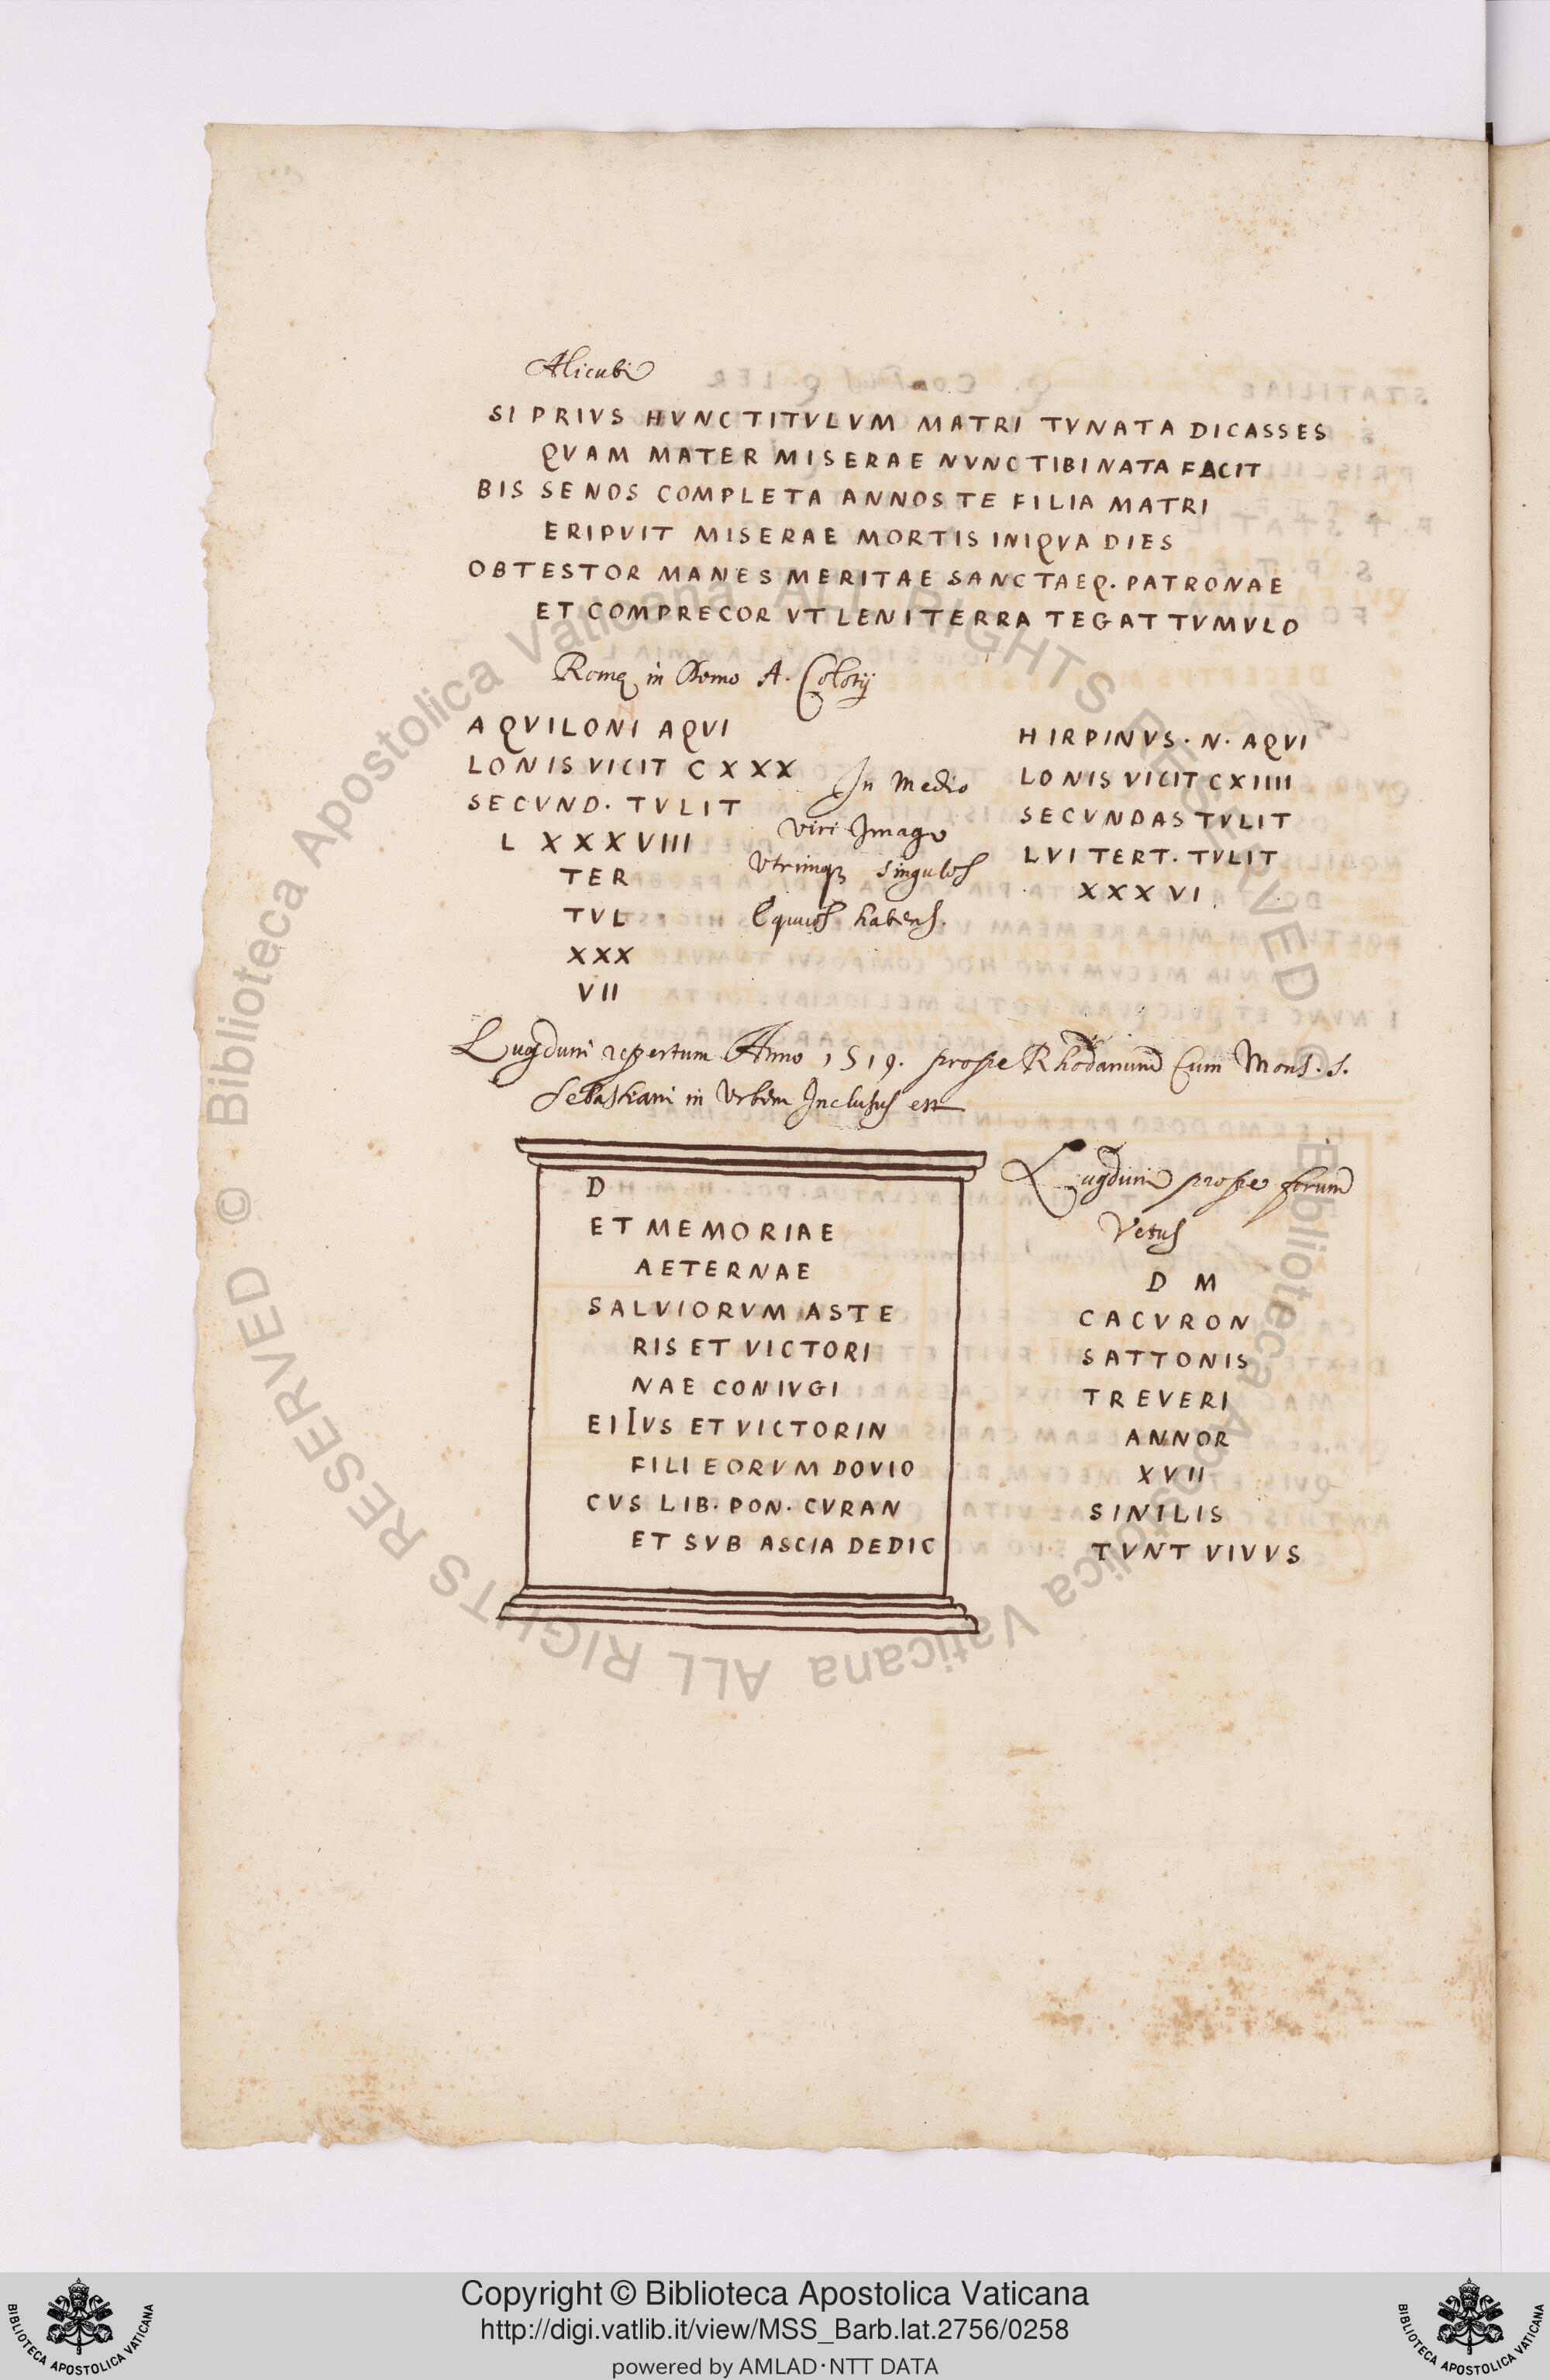 Alicubi
SI PRIVS HVNC TITVLVM MATRI TVNATA DICASSES
QVAM MATER MISERAE NVNC TIBI NATA FACIT
BIS SENOS COMPLETA ANNOS TE FILIA MATRI
ERIPVIT MISERAE MORTIS INIQVA DIES
OBTESTOR MANES MERITAE SANCTAEQ. PATRONAE
ET COMPRECOR VT LENI TERRA TEGAT TVMVLO
Romę in Domo A. Colotij
AQVILONI AQVI
LONIS VICIT CXXX
SECVND. TVLIT
LXXXVIII
TER
TVL
XXX
VII
In Medio
Viri Imago
Vtrinqꝫ singulos
Equos habens.
HIRPINVS. N. AQVI
LONIS VICIT CXIIII
SECVNDAS TVLIT
LVI TERT. TVLIT
XXXVI
Lugduni repertum Anno 1519. prope Rhodanum Cum Mons. S.
Sebastiani in Vrbem Inclusus est
D
ET MEMORIAE
AETERNAE
SALVIORVM ASTE
RIS ET VICTORI
NAE CONIVGI
EIIVS ET VICTORIN
FILI EORVM DOVIO
CVS LIB. PON. CVRAN
ET SVB ASCIA DEDIC
Lugduni prope forum
Vetus
D M
CACVRON
SATTONIS
TREVERI
ANNOR
XVII
SINILIS
TVNT VIVVS
© Biblioteca Apostolica Vaticana ALL RIGHTS RESERVED © Biblioteca Apostolica Vaticana ALL RIGHTS RESERVED
Copyright © Biblioteca Apostolica Vaticana
http://digi.vatlib.it/view/MSS_Barb.lat.2756/0258
powered by AMLAD·NTT DATA
BIBLIOTECA APOSTOLICA VATICANA
BIBLIOTECA APOSTOLICA VATICANA